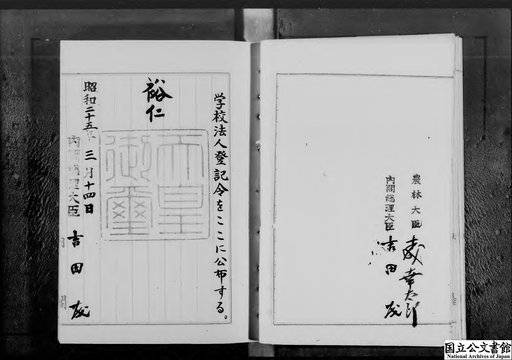 農林大臣
内閣総理大臣 吉田茂
学校法人登記令をここに公布する。
裕仁
天皇御璽
昭和二十五年三月十四日
内閣総理大臣 吉田茂
国立公文書館
National Archives of Japan